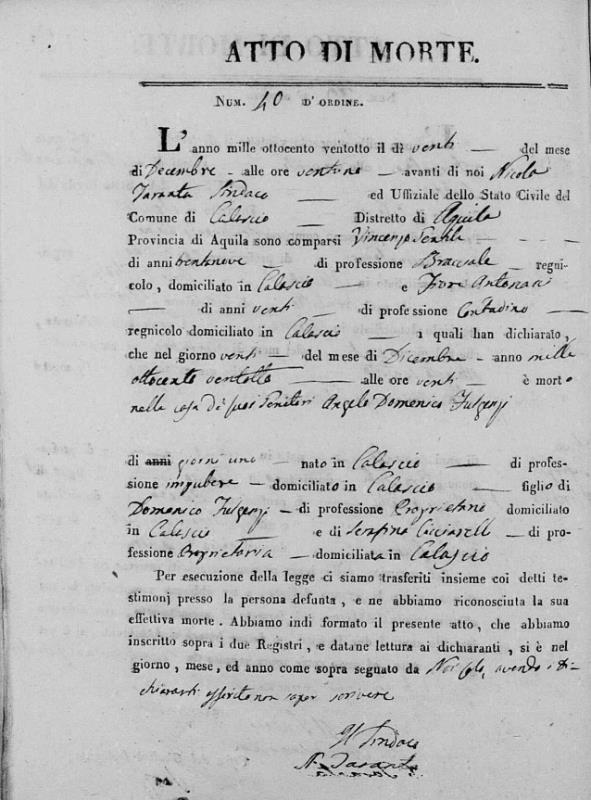 ATTO DI MORTE.
NUM. 40 D'ORDINE.
L'anno mille ottocento ventotto il dì venti del mese
di Decembre alle ore ventuno avanti di noi Nicola
Taranta Sindaco ed Uffiziale dello Stato Civile del
Comune di Calascio Distretto di Aquila
Provincia di Aquila sono comparsi Vincenzo Gentile
di anni ventinove di professione Bracciale regni-
colo, domiciliato in Calascio e Fiore Antonacci
di anni venti di professione Contadino
regnicolo domiciliato in Calascio i quali han dichiarato,
che nel giorno venti del mese di Dicembre anno mille
ottocento ventotto alle ore venti è morto
nella casa di suoi Genitori Angelo Domenico Fulgenzj
di anni giorni uno nato in Calascio di profes-
sione impubere domiciliato in Calascio figlio di
Domenico Fulgenzj di professione Proprietario domiciliato
in Calascio e di Serafina di pro-
fessione Proprietaria domiciliata in Calascio
Per esecuzione della legge ci siamo trasferiti insieme coi detti te-
stimonj presso la persona defunta, e ne abbiamo riconosciuta la sua
effettiva morte. Abbiamo indi formato il presente atto, che abbiamo
inscritto sopra i due Registri, e datane lettura ai dichiaranti, si è nel
giorno, mese, ed anno come sopra segnato da Noi soli, avendo i di-
chiaranti asserito non saper scrivere
Il Sindaco
N. Taranta